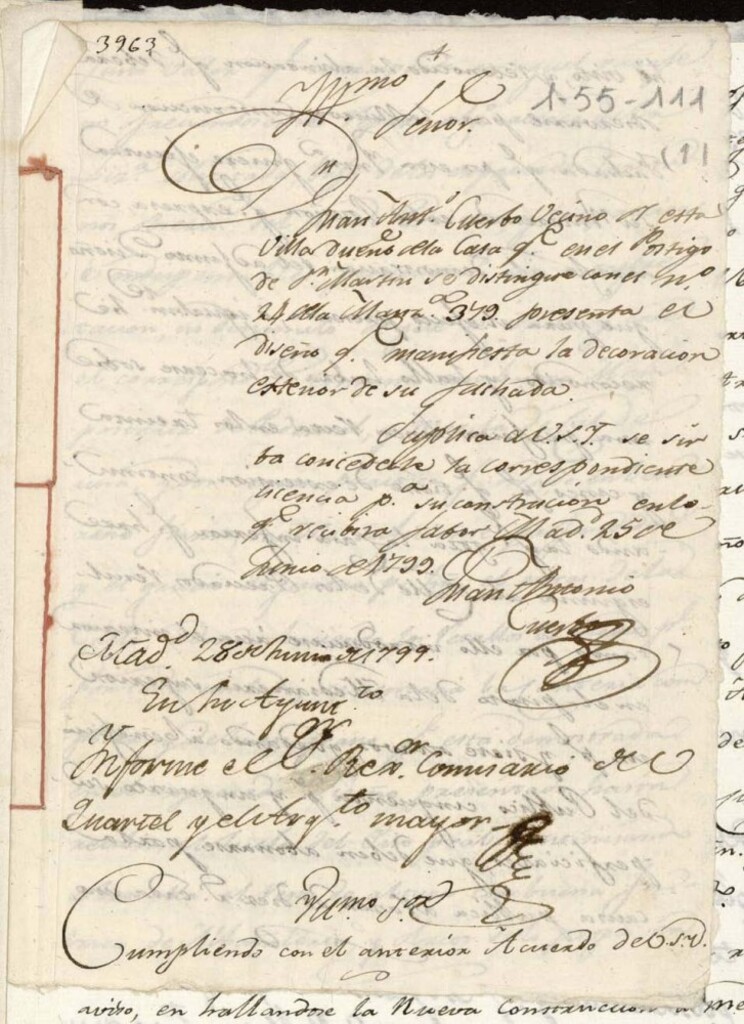 3963
+
Yllmo Señor.
1-55-111
(1)
Dn
Juan Antº Cuerbo Vecino de esta
Villa dueño de la Casa q.e en el Postigo
de Sn Martin se distingue con el nº
24 de la Manz.a 379. presenta el
diseño q.e manifiesta la decoracion
esterior de su fachada.
Suplica a V.S.Y. se sir
ba concederle la correspondiente
licencia p.a su constración en lo
q.e recibira fabor Mad.d 25 de
Junio de 1799.
Juan Antonio
Cuerbo
Mad.d 28 de Junio de 1799.
En su Ayunt.to
Ynforme el S.r Rex.or Comisario del
Quartel y el Arq.to mayor
Yllmo S.or
Cumpliendo con el anterior Acuerdo de V.S.Y.
aviso, en hallandose la Nueva Construccion a